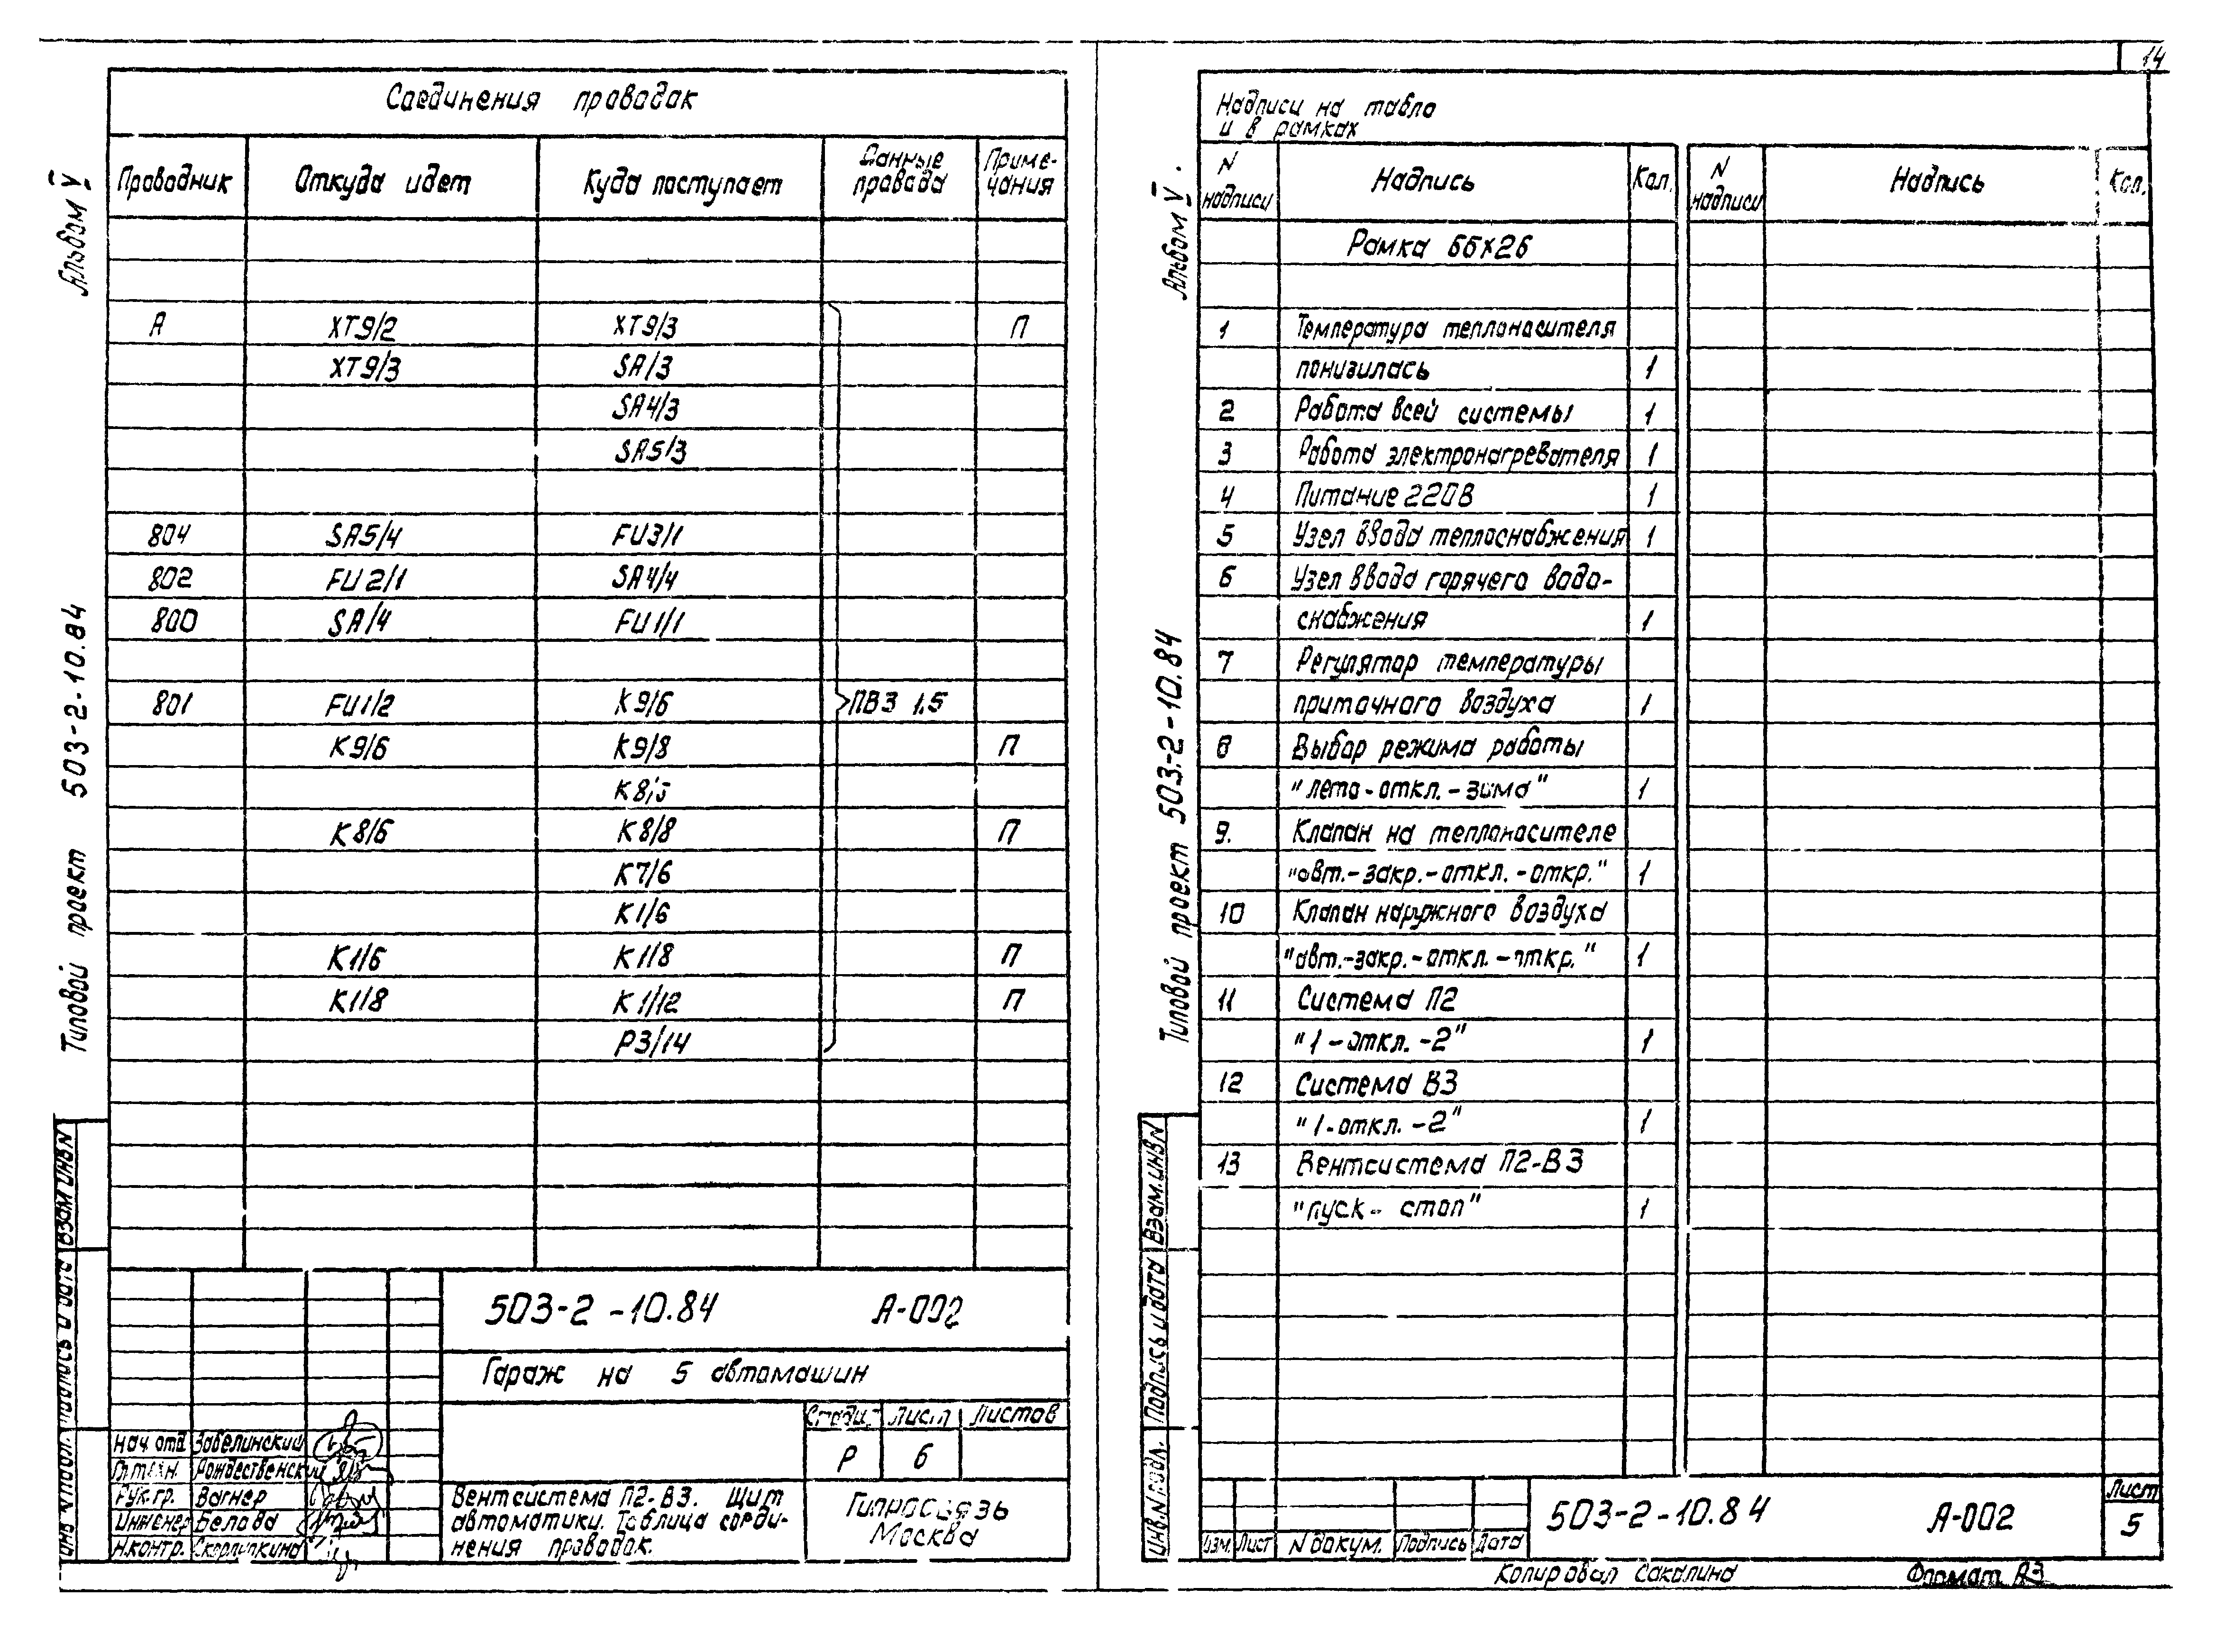 14
Соединения проводок
Проводник Откуда идет Куда поступает Данные провода Примечания
А ХТ9/2 ХТ9/3 П
ХТ9/3 SA/3
SA4/3
SA5/3
804 SA5/4 FU3/1
802 FU2/1 SA4/4
800 SA/4 FU1/1
801 FU1/2 К9/6 ПВ3 1.5
К9/6 К9/8 П
К8/6
К8/6 К8/8 П
К7/6
К1/6
К1/6 К1/8 П
К1/8 К1/12 П
Р3/14
Альбом V
Типовой проект 503-2-10.84
Взам инв N
Подпись и дата
Инв N подл.
503-2-10.84 А-002
Гараж на 5 автомашин
Стадия Лист Листов
Р 6
Нач. отд Забелинский
Гл. техн. Рождественский
Рук. гр. Вагнер
Инженер Белова
Н.контр.
Вентсистема П2-В3. Щит
автоматики. Таблица соеди-
нения проводок.
Гипросвязь
Москва
Надписи на табло
и в рамках
N надписи Надпись Кол. N надписи Надпись Кол.
Рамка 66х26
1 Температура теплоносителя
понизилась 1
2 Работа всей системы 1
3 Работа электронагревателя 1
4 Питание 220В 1
5 Узел ввода теплоснабжения 1
6 Узел ввода горячего водо-
снабжения 1
7 Регулятор температуры
приточного воздуха 1
8 Выбор режима работы
"лето-откл.-зима" 1
9. Клапан на теплоносителе
"авт.-закр.-откл.-откр." 1
10 Клапан наружного воздуха
"авт.-закр.-откл.-откр." 1
11 Система П2
"1-откл.-2" 1
12 Система В3
"1-откл.-2" 1
13 Вентсистема П2-В3
"пуск-стоп" 1
Альбом V.
Типовой проект 503-2-10.84
Взам.инв N
Подпись и дата
Инв.N подл.
Изм. Лист N докум. Подпись Дата
503-2-10.84 А-002
Лист
5
Копировал Сокалина Формат А3